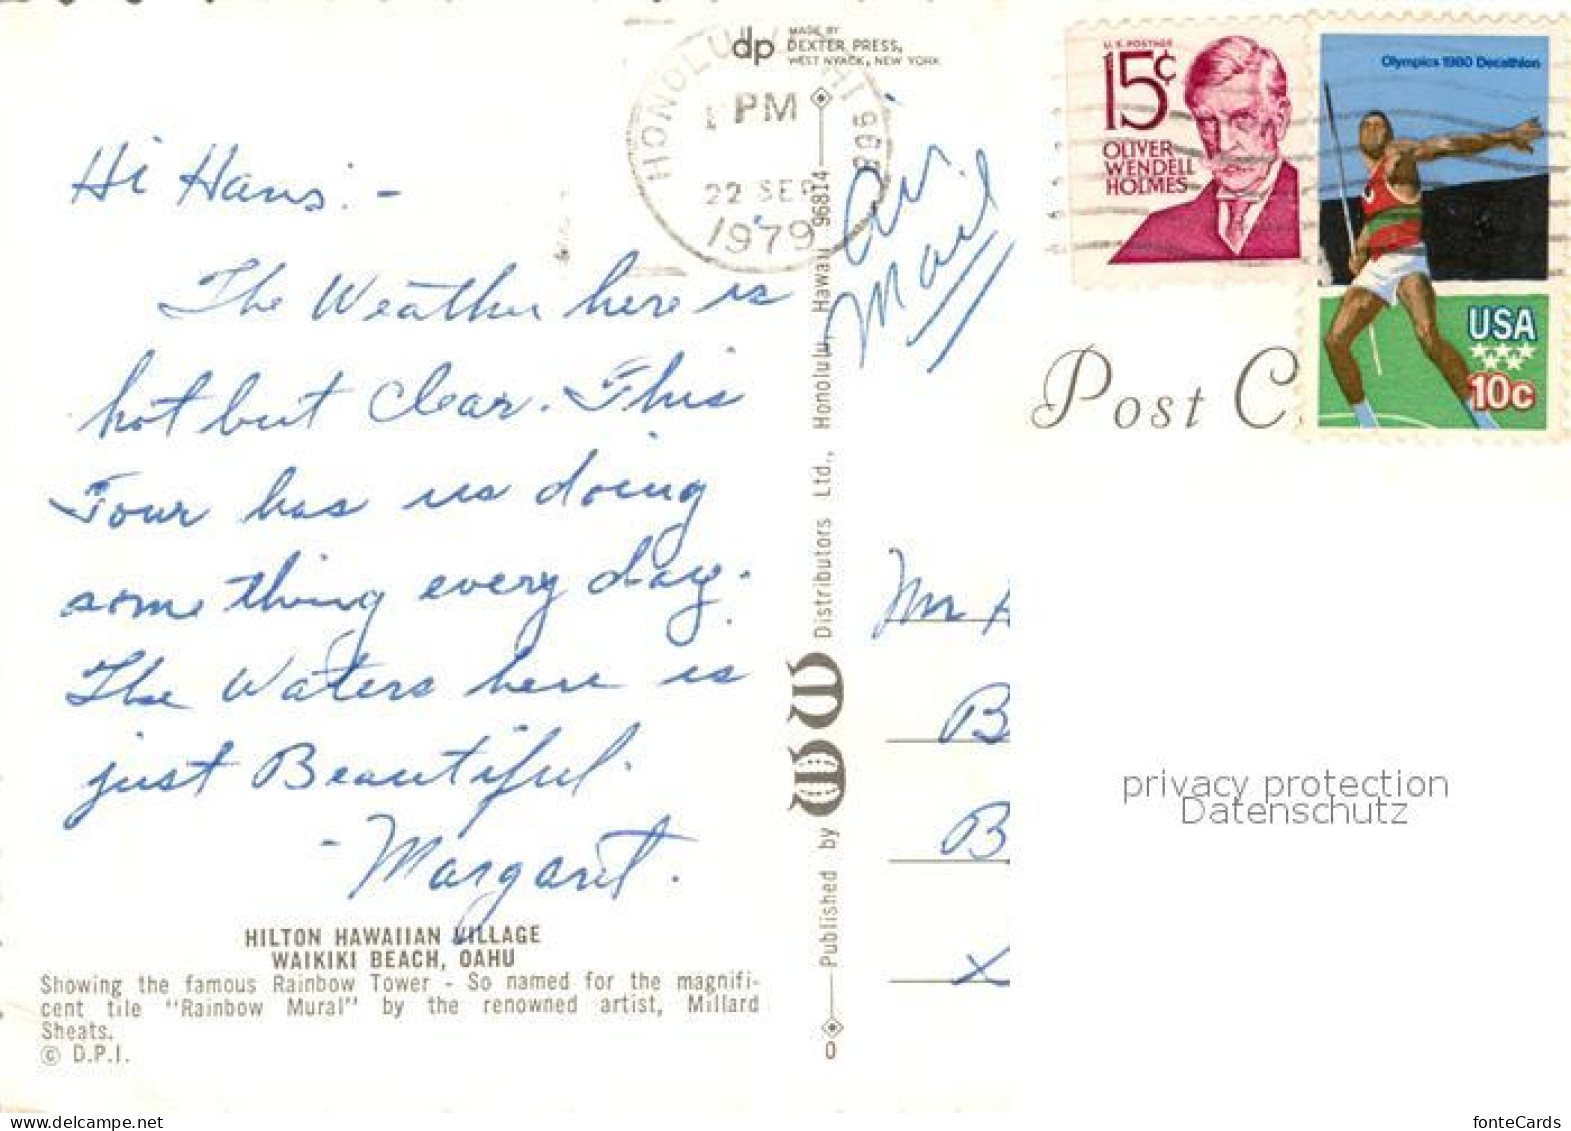 dp MADE BY
DEXTER PRESS,
WEST NYACK, NEW YORK
HONOLULU, HI 968
PM
22 SEP
1979
U.S. POSTAGE
15¢
OLIVER
WENDELL
HOLMES
Olympics 1980 Decathlon
USA
10c
Air
Mail
Post C
Hi Hans: -
The Weather here is
hot but Clear. This
Tour has us doing
some thing every day.
The Waters here is
just Beautiful.
- Margaret.
HILTON HAWAIIAN VILLAGE
WAIKIKI BEACH, OAHU
Showing the famous Rainbow Tower - So named for the magnifi-
cent tile "Rainbow Mural" by the renowned artist, Millard
Sheats.
© D.P.I.
Published by WW Distributors Ltd., Honolulu, Hawaii 96814
0
Mr H
B
B
X
privacy protection
Datenschutz
www.delcampe.net
fonteCards